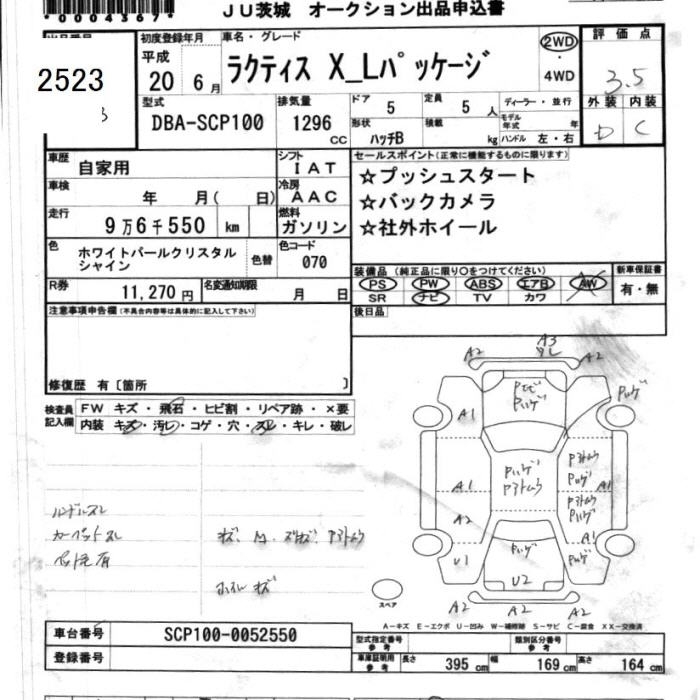 *0004367*
JU茨城 オークション出品申込書
出品番号
2523
3
初度登録年月
平成
20 6月
車名・グレード
ラクティス X_Lパッケージ
2WD
・
4WD
評価点
3.5
外装 内装
D C
型式
DBA-SCP100
排気量
1296 CC
ドア 5
定員 5 人
形状 ハッチB
積載 kg
ディーラー・並行
モデル年式 年
ハンドル 左・右
車歴 自家用
シフト IAT
車検 年 月( 日)
冷房 AAC
走行 9万6千550 km
燃料 ガソリン
色 ホワイトパールクリスタル
シャイン
色替
色コード 070
R券 11,270円
名変通知期限 月 日
セールスポイント(正常に機能するものに限ります)
☆プッシュスタート
☆バックカメラ
☆社外ホイール
装備品 (純正品に限り○をつけてください)
PS PW ABS エアB AW
SR ナビ TV カワ
新車保証書
有・無
後日品
注意事項申告欄(不具合内容等は具体的に記入して下さい)
修復歴 有〔箇所 〕
検査員記入欄
FW キズ・飛石・ヒビ割・リペア跡・×要
内装 キズ・汚レ・コゲ・穴・スレ・キレ・破レ
ハンドルスレ
カーペットスレ
ペット毛有
キズ、M、スリキズ、Pアトムラ
ホイルキズ
A3
A2 ワレ A2
Pトビ
Pハゲ
Pハゲ
A1
Pハゲ
Pアトムラ
Pアトムラ
Pハゲ
A1 A1
A2
Pアトムラ
Pハゲ
A1
U1
Pハゲ
Pハゲ
U2
A2 A2 A2
スペア
A-キズ E-エクボ U-凹み W-補修跡 S-サビ C-腐食 XX-交換済
車台番号 SCP100-0052550
登録番号
型式指定番号 参考
類別区分番号 参考
車庫証明用 参考 長さ 395 cm 幅 169 cm 高さ 164 cm